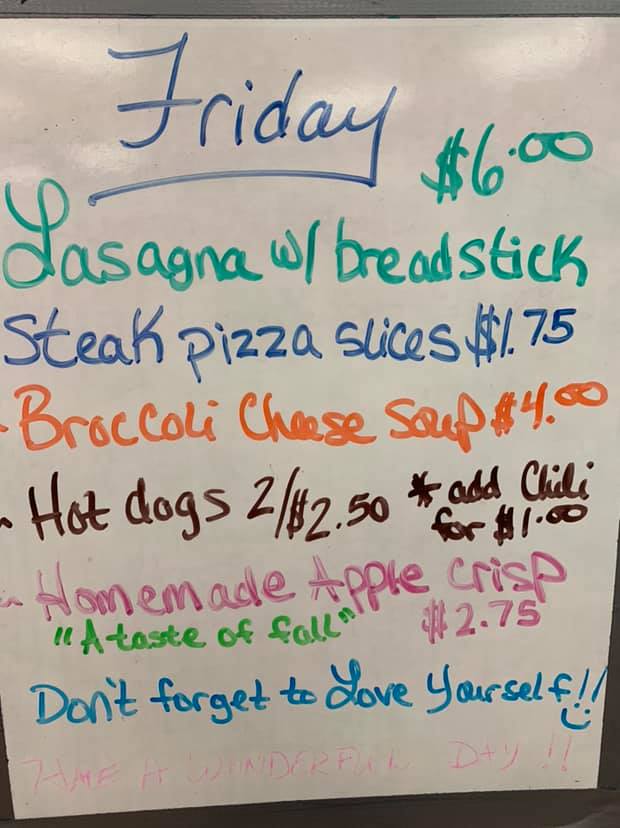 Friday
$6.00
Lasagna w/ breadstick
Steak pizza slices $1.75
- Broccoli Cheese Soup $4.00
- Hot dogs 2/$2.50 * add Chili
for $1.00
- Homemade Apple Crisp
"A taste of fall" $2.75
Don't forget to Love Yourself!!
HAVE A WONDERFUL DAY!!